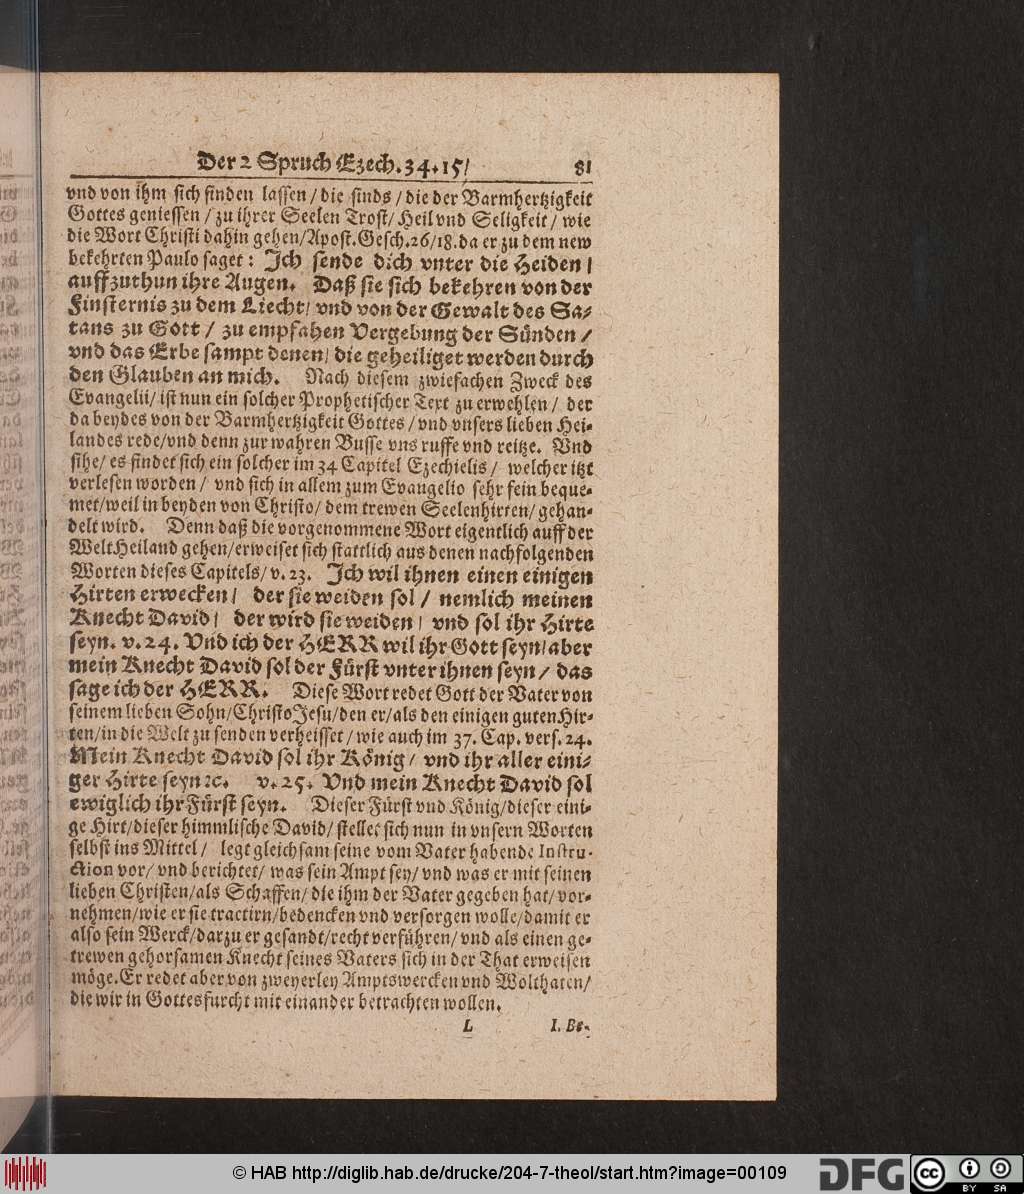 Der 2 Spruch Ezech. 34. 15/ 81
vnd von ihm sich finden lassen / die sinds / die der Barmhertzigkeit
Gottes geniessen / zu ihrer Seelen Trost / Heil vnd Seligkeit / wie
die Wort Christi dahin gehen / Apost. Gesch. 26/18. da er zu dem new
bekehrten Paulo saget: Ich sende dich vnter die Heiden /
auffzuthun ihre Augen. Daß sie sich bekehren von der
Finsternis zu dem Liecht / vnd von der Gewalt des Sa-
tans zu Gott / zu empfahen Vergebung der Sünden /
vnd das Erbe sampt denen / die geheiliget werden durch
den Glauben an mich. Nach diesem zwiefachen Zweck des
Evangelii / ist nun ein solcher Prophetischer Text zu erwehlen / der
da beydes von der Barmhertzigkeit Gottes / vnd vnsers lieben Hei-
landes rede / vnd denn zur wahren Busse vns ruffe vnd reitze. Vnd
sihe / es findet sich ein solcher im 34 Capitel Ezechielis / welcher itzt
verlesen worden / vnd sich in allem zum Evangelio sehr fein beque-
met / weil in beyden von Christo / dem trewen Seelenhirten / gehan-
delt wird. Denn daß die vorgenommene Wort eigentlich auff der
Welt Heiland gehen / erweiset sich stattlich aus denen nachfolgenden
Worten dieses Capitels / v. 23. Ich wil ihnen einen einigen
Hirten erwecken / der sie weiden sol / nemlich meinen
Knecht David / der wird sie weiden / vnd sol ihr Hirte
seyn. v. 24. Vnd ich der HERR wil ihr Gott seyn / aber
mein Knecht David sol der Fürst vnter ihnen seyn / das
sage ich der HERR. Diese Wort redet Gott der Vater von
seinem lieben Sohn / Christo Jesu / den er / als den einigen guten Hir-
ten / in die Welt zu senden verheisset / wie auch im 37. Cap. vers. 24.
Mein Knecht David sol ihr König / vnd ihr aller eini-
ger Hirte seyn ꝛc. v. 25. Vnd mein Knecht David sol
ewiglich ihr Fürst seyn. Dieser Fürst vnd König / dieser eini-
ge Hirt / dieser himmlische David / stellet sich nun in vnsern Worten
selbst ins Mittel / legt gleichsam seine vom Vater habende Instru-
ction vor / vnd berichtet / was sein Ampt sey / vnd was er mit seinen
lieben Christen / als Schaffen / die ihm der Vater gegeben hat / vor-
nehmen / wie er sie tractirn / bedencken vnd versorgen wolle / damit er
also sein Werck / darzu er gesandt / recht verführen / vnd als einen ge-
trewen gehorsamen Knecht seines Vaters sich in der That erweisen
möge. Er redet aber von zweyerley Amptswercken vnd Wolthaten /
die wir in Gottesfurcht mit einander betrachten wollen.
L I. Be-
© HAB http://diglib.hab.de/drucke/204-7-theol/start.htm?image=00109
DFG
cc BY SA